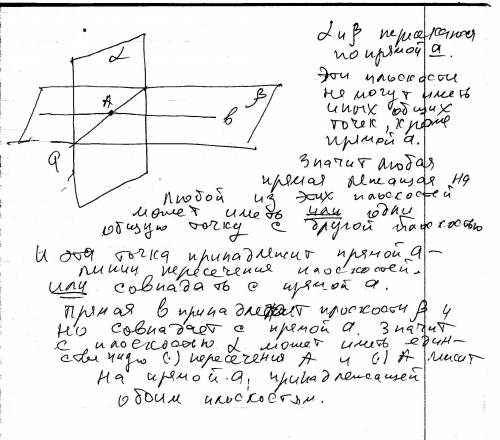 α
A
β
в
a
α и β пересекаются
по прямой а.
Эти плоскости
не могут иметь
иных общих
точек, кроме
прямой а.
Значит любая
прямая лежащая на
любой из этих плоскостей
может иметь или одну
общую точку с другой плоскостью
И эта точка принадлежит прямой а –
линии пересечения плоскостей.
или совпадать с прямой а.
Прямая в принадлежит плоскости β и
но совпадает с прямой а. Значит
с плоскостью α может иметь един-
ственную (·) пересечения А и (·) А лежит
на прямой а, принадлежащей
обоим плоскостям.